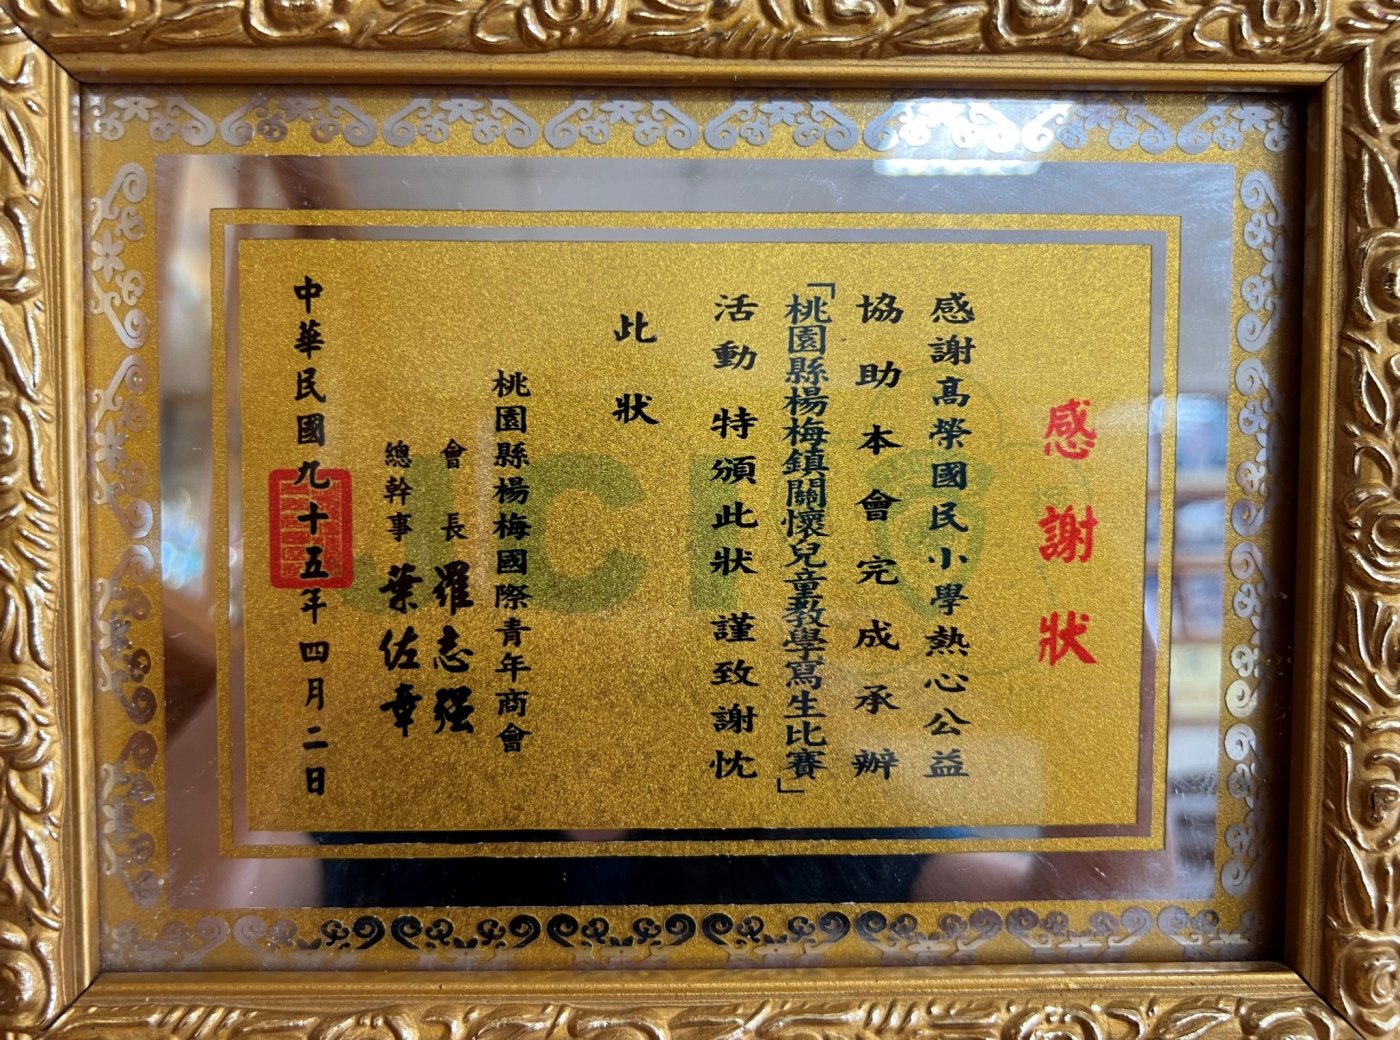 感謝狀
感謝高榮國民小學熱心公益
協助本會完成承辦
「桃園縣楊梅鎮關懷兒童教學寫生比賽」
活動特頒此狀謹致謝忱
此狀
桃園縣楊梅國際青年商會
會長羅志强
總幹事葉佐章
中華民國九十五年四月二日
JCI